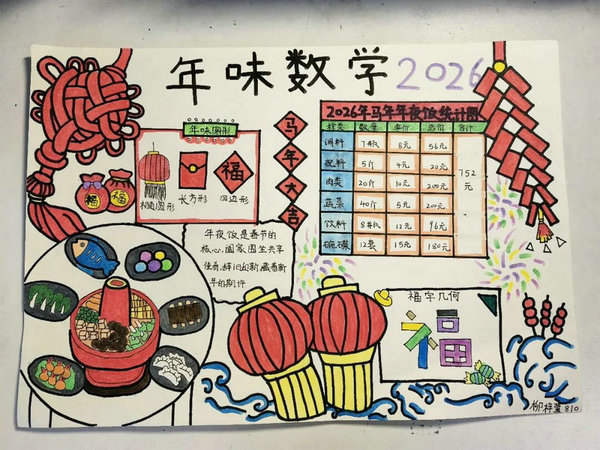 年味数学2026
年味图形
椭圆形
长方形
四边形
福
福
福
马年大吉
2026年马年年夜饭统计图
种类 数量 单价 总价 合计
调料 7瓶 8元 56元
配料 5斤 4元 20元
肉类 20斤 10元 200元
蔬菜 40斤 5元 200元
饮料 8瓶 12元 96元
碗碟 12套 15元 180元
752元
年夜饭是春节的
核心,阖家围坐共享
佳肴,辞旧迎新,藏着新
年的期许
福字几何
福
810